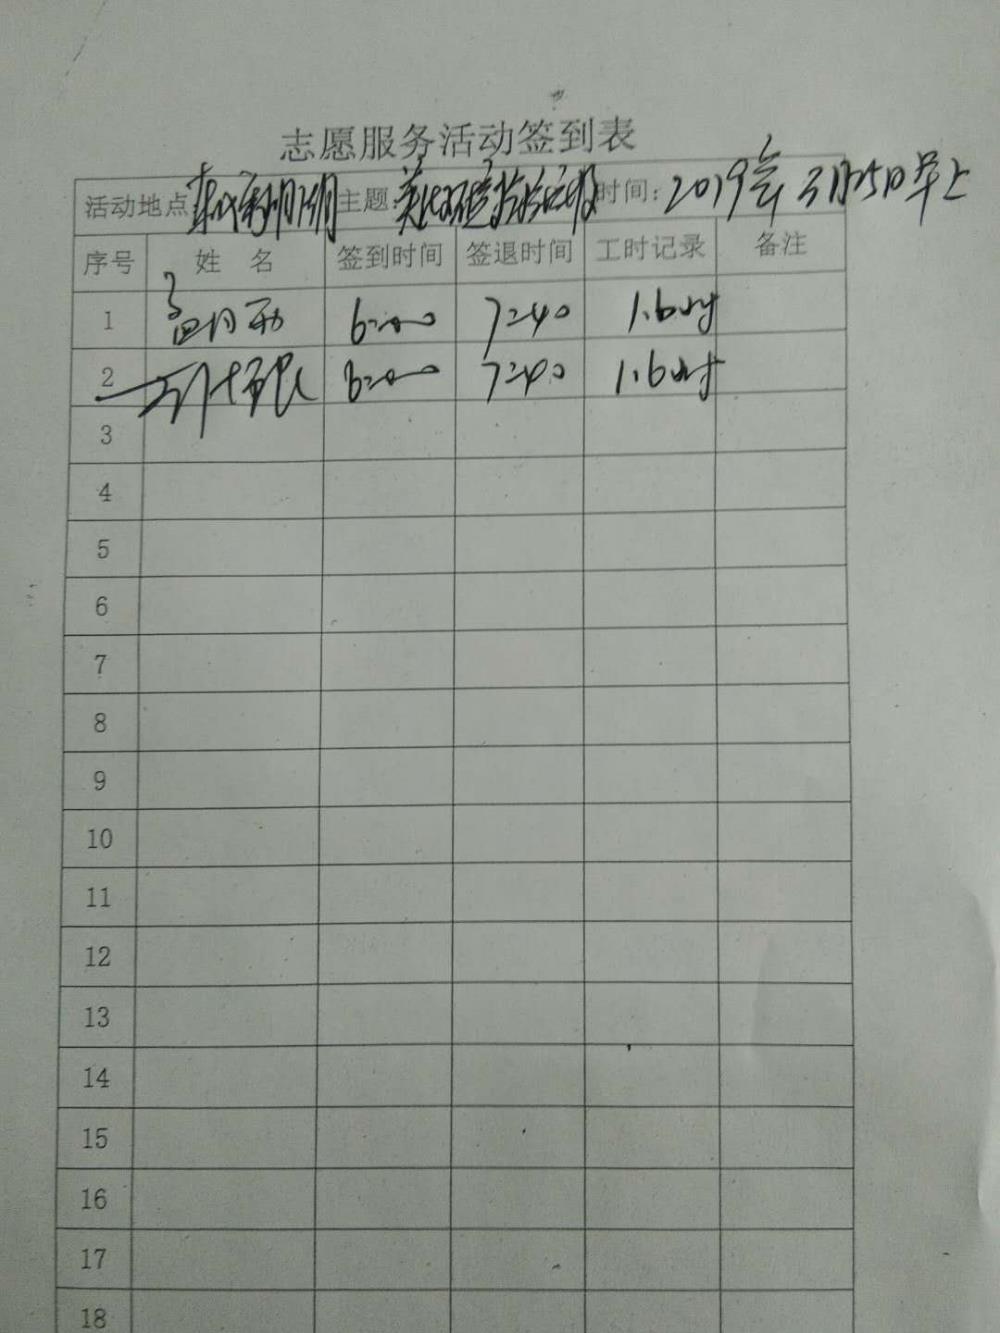 志愿服务活动签到表
活动地点 主题 美化环境 时间: 2019年3月25日早上
序号 姓 名 签到时间 签退时间 工时记录 备注
1 孟 6:00 7:40 1.6小时
2 6:00 7:40 1.6小时
3
4
5
6
7
8
9
10
11
12
13
14
15
16
17
18